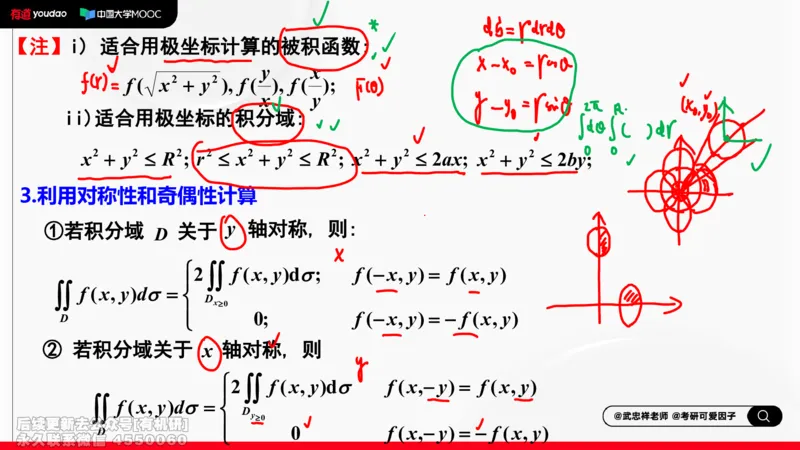 有道youdao 中国大学MOOC
【注】i) 适合用极坐标计算的被积函数:
f(r)= f(√(x²+y²)), f(y/x), f(x/y); F(θ)
ii)适合用极坐标的积分域:
x²+y²≤R²; r²≤x²+y²≤R²; x²+y²≤2ax; x²+y²≤2by;
dσ=rdrdθ
x-x₀=rcosθ
y-y₀=rsinθ
∫₀^2π dθ ∫₀^R ( )dr
(x₀,y₀)
3.利用对称性和奇偶性计算
①若积分域 D 关于 y 轴对称，则:
x
∬_D f(x,y)dσ = { 2∬_{D_{x≥0}} f(x,y)dσ; f(−x,y)=f(x,y)
0; f(−x,y)=−f(x,y)
② 若积分域关于 x 轴对称，则
y
∬_D f(x,y)dσ = { 2∬_{D_{y≥0}} f(x,y)dσ f(x,−y)=f(x,y)
0 f(x,−y)=−f(x,y)
@武忠祥老师 @考研可爱因子
后续更新去公众号[有机研]
永久联系微信 4550060